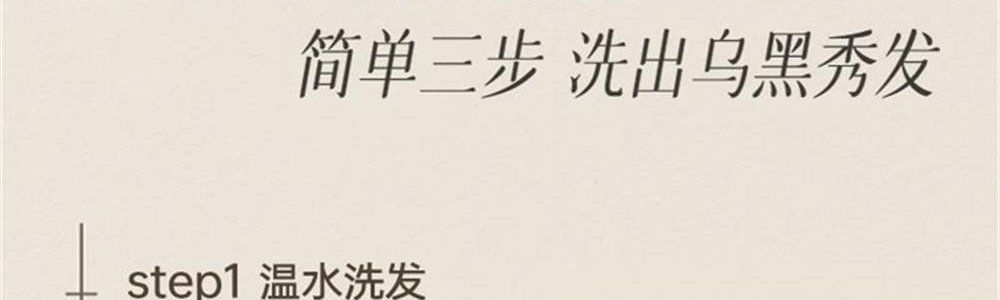 简单三步 洗出乌黑秀发
step1 温水洗发